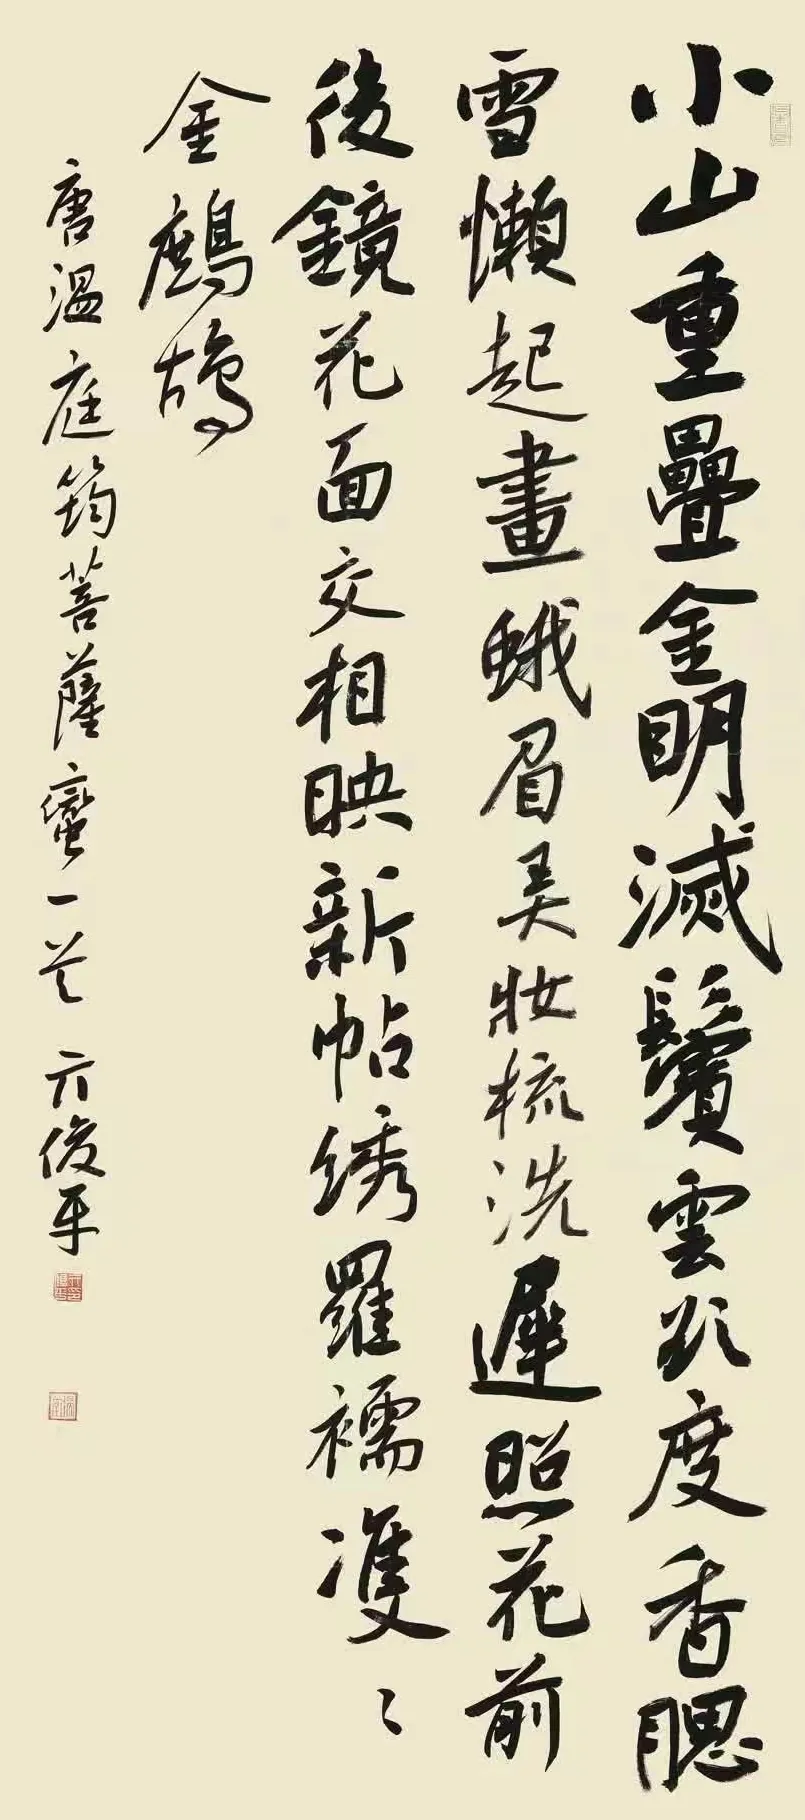 小山重疊金明滅鬢雲欲度香腮
雪懶起畫蛾眉弄妝梳洗遲照花前
後鏡花面交相映新帖綉羅襦雙〻
金鷓鴣
唐温庭筠菩薩蠻一首 亓俊平